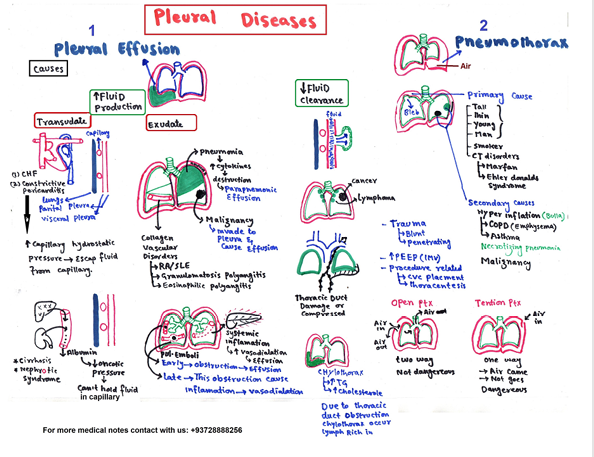 Pleural Diseases
1
Pleural Effusion
Causes
↑Fluid
↑Production
Transudate
Exudate
capillary
(1) CHF
(2) Constrictive
pericarditis
lungs
Parital pleura
visceral pleura
↑ Capillary hydrostatic
pressure → Escap fluid
from capillary.
*Cirrhosis
*Nephrotic
syndrome
↓Albumin
↓oncotic
pressure
Can't hold fluid
in capillary
pneumonia
↑cytokines
destruction
Parapnemonic
Effusion
Malignancy
invade to
pleura &
cause Effusion
Collagen
Vascular
Disorders
→RA/SLE
→Granulomatosis Polyangitis
→Eosinophilic polyangitis
Systemic
inflamation
↑vasodialation
Effusion
Pul·Emboli
Early→obstruction→effusion
Late→This obstruction cause
inflamation→vasodialation
↓Fluid
clearance
fluid
cancer
Lymphoma
Thoracic Duct
Damage or
Compressed
Chylothorax
→↑TG
→↑cholesterole
Due to thoracic
duct obstruction
chylothorax occur
lymph Rich in
- Trauma
→Blunt
→Penetrating
- ↑PEEP (IMV)
- procedure related
→CVC placment
→thoracentesis
2
Pneumothorax
Air
Bleb
Primary Cause
Tall
thin
young
Man
smoker
CT disorders
→Marfan
→Ehler danlos
syndrome
Secondary causes
Hyper inflation (Bulla)
→COPD (Emphysema)
→Asthma
Necrotizing pneumonia
Malignancy
Open Ptx
Air out
Air in
Air out
two way
Not dangerous
Tention Ptx
Air
in
one way
→Air came
→Not goes
Dangereous
For more medical notes contact with us: +93728888256